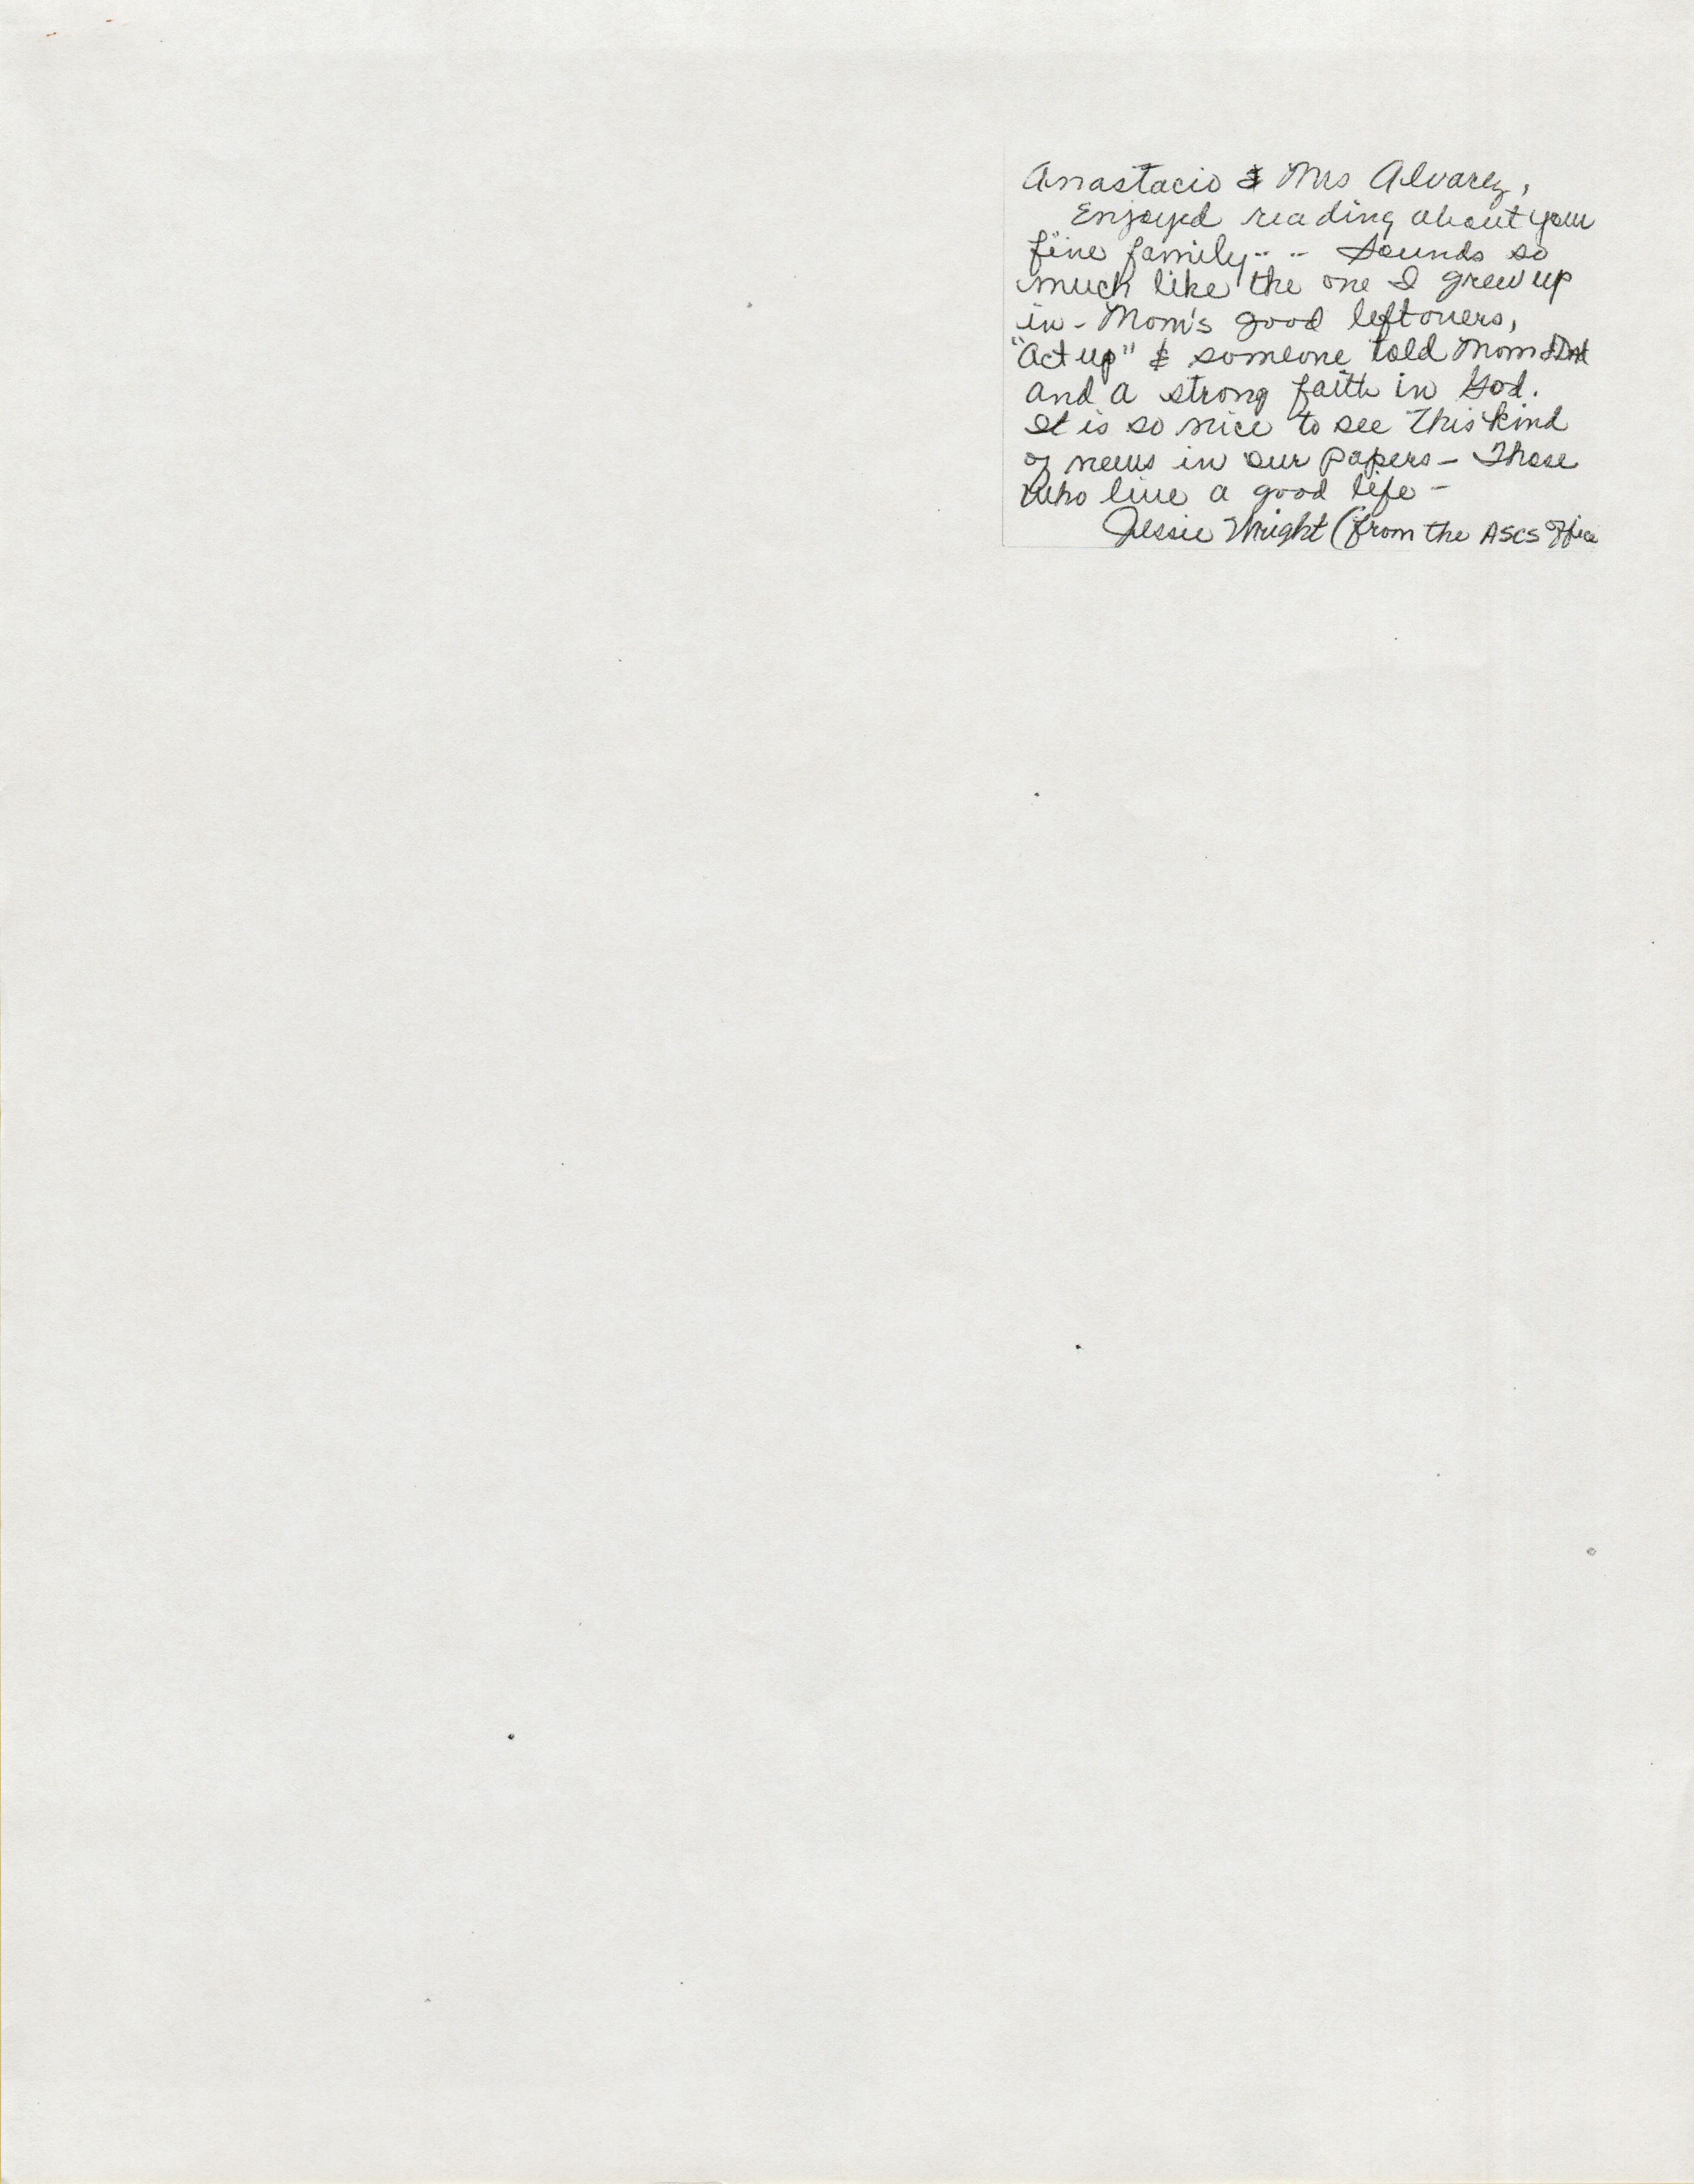 Anastacio & Mrs Alvarez,
Enjoyed reading about your
fine family.. .. Sounds so
much like the one I grew up
in - Mom's good leftovers,
"Act up" & someone told Mom & Dad
and a strong faith in God.
It is so nice to see this kind
of news in our papers - Those
who live a good life -
Jessie Wright (from the ASCS Office